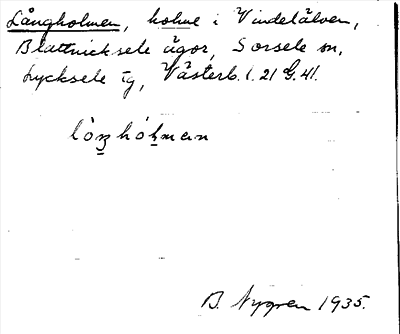 Långholmen, holme i Vindelälven,
Blattnicksele ägor, Sorsele sn,
Lycksele tg, Västerb. l. 21 G. 41.
B. Nygren 1935.